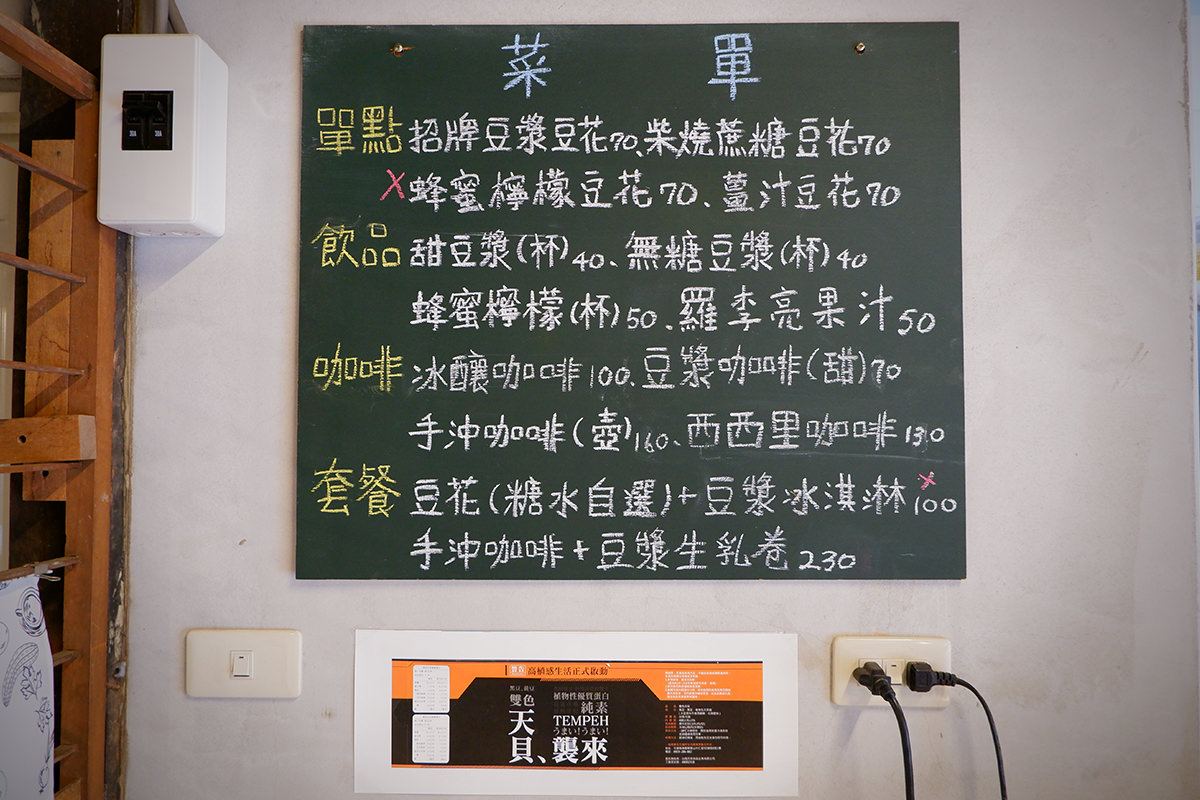 菜 單
單點 招牌豆漿豆花70、柴燒蔗糖豆花70
X 蜂蜜檸檬豆花70、薑汁豆花70
飲品 甜豆漿(杯)40、無糖豆漿(杯)40
蜂蜜檸檬(杯)50、羅李亮果汁50
咖啡 冰釀咖啡100、豆漿咖啡(甜)70
手沖咖啡(壺)160、西西里咖啡130
套餐 豆花(糖水自選)+豆漿冰淇淋 X 100
手沖咖啡+豆漿生乳卷230
高植感生活正式啟動
雙色
天貝、襲來
植物性優質蛋白
純素
TEMPEH
うまい!うまい!